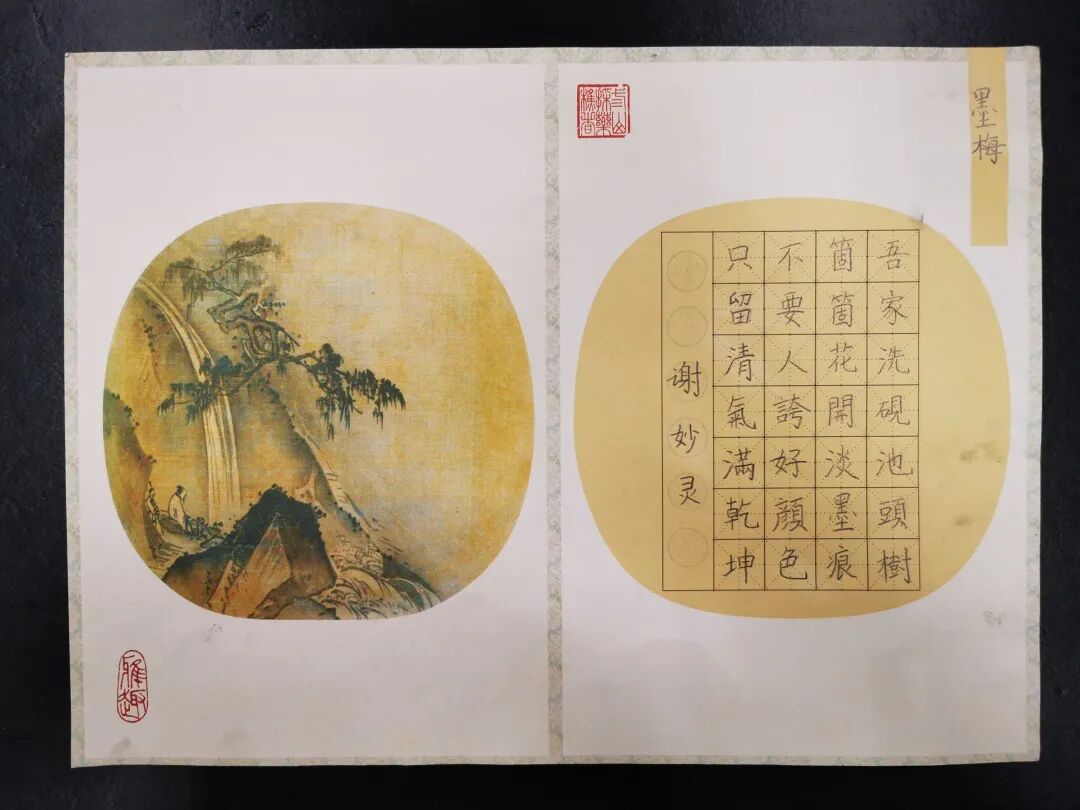 墨梅
吾家洗硯池頭樹
箇箇花開淡墨痕
不要人誇好顔色
只留清氣滿乾坤
谢妙灵
雅趣